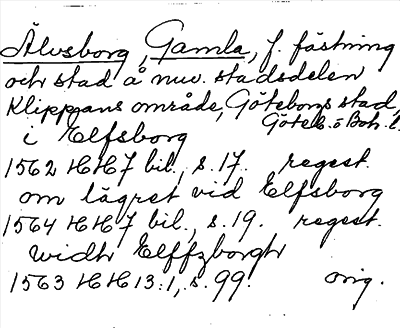 Älvsborg, Gamla, f. fästning
och stad å nuv. stadsdelen
Klippans område, Göteborgs stad,
Göteb. o Boh. l.
i Elfsborg
1562 HH 7 bil., s. 17. regest.
om lägret vid Elfsborg
1564 HH 7 bil., s. 19. regest.
widh Elffzborgh
1563 HH 13:1, s. 99. orig.